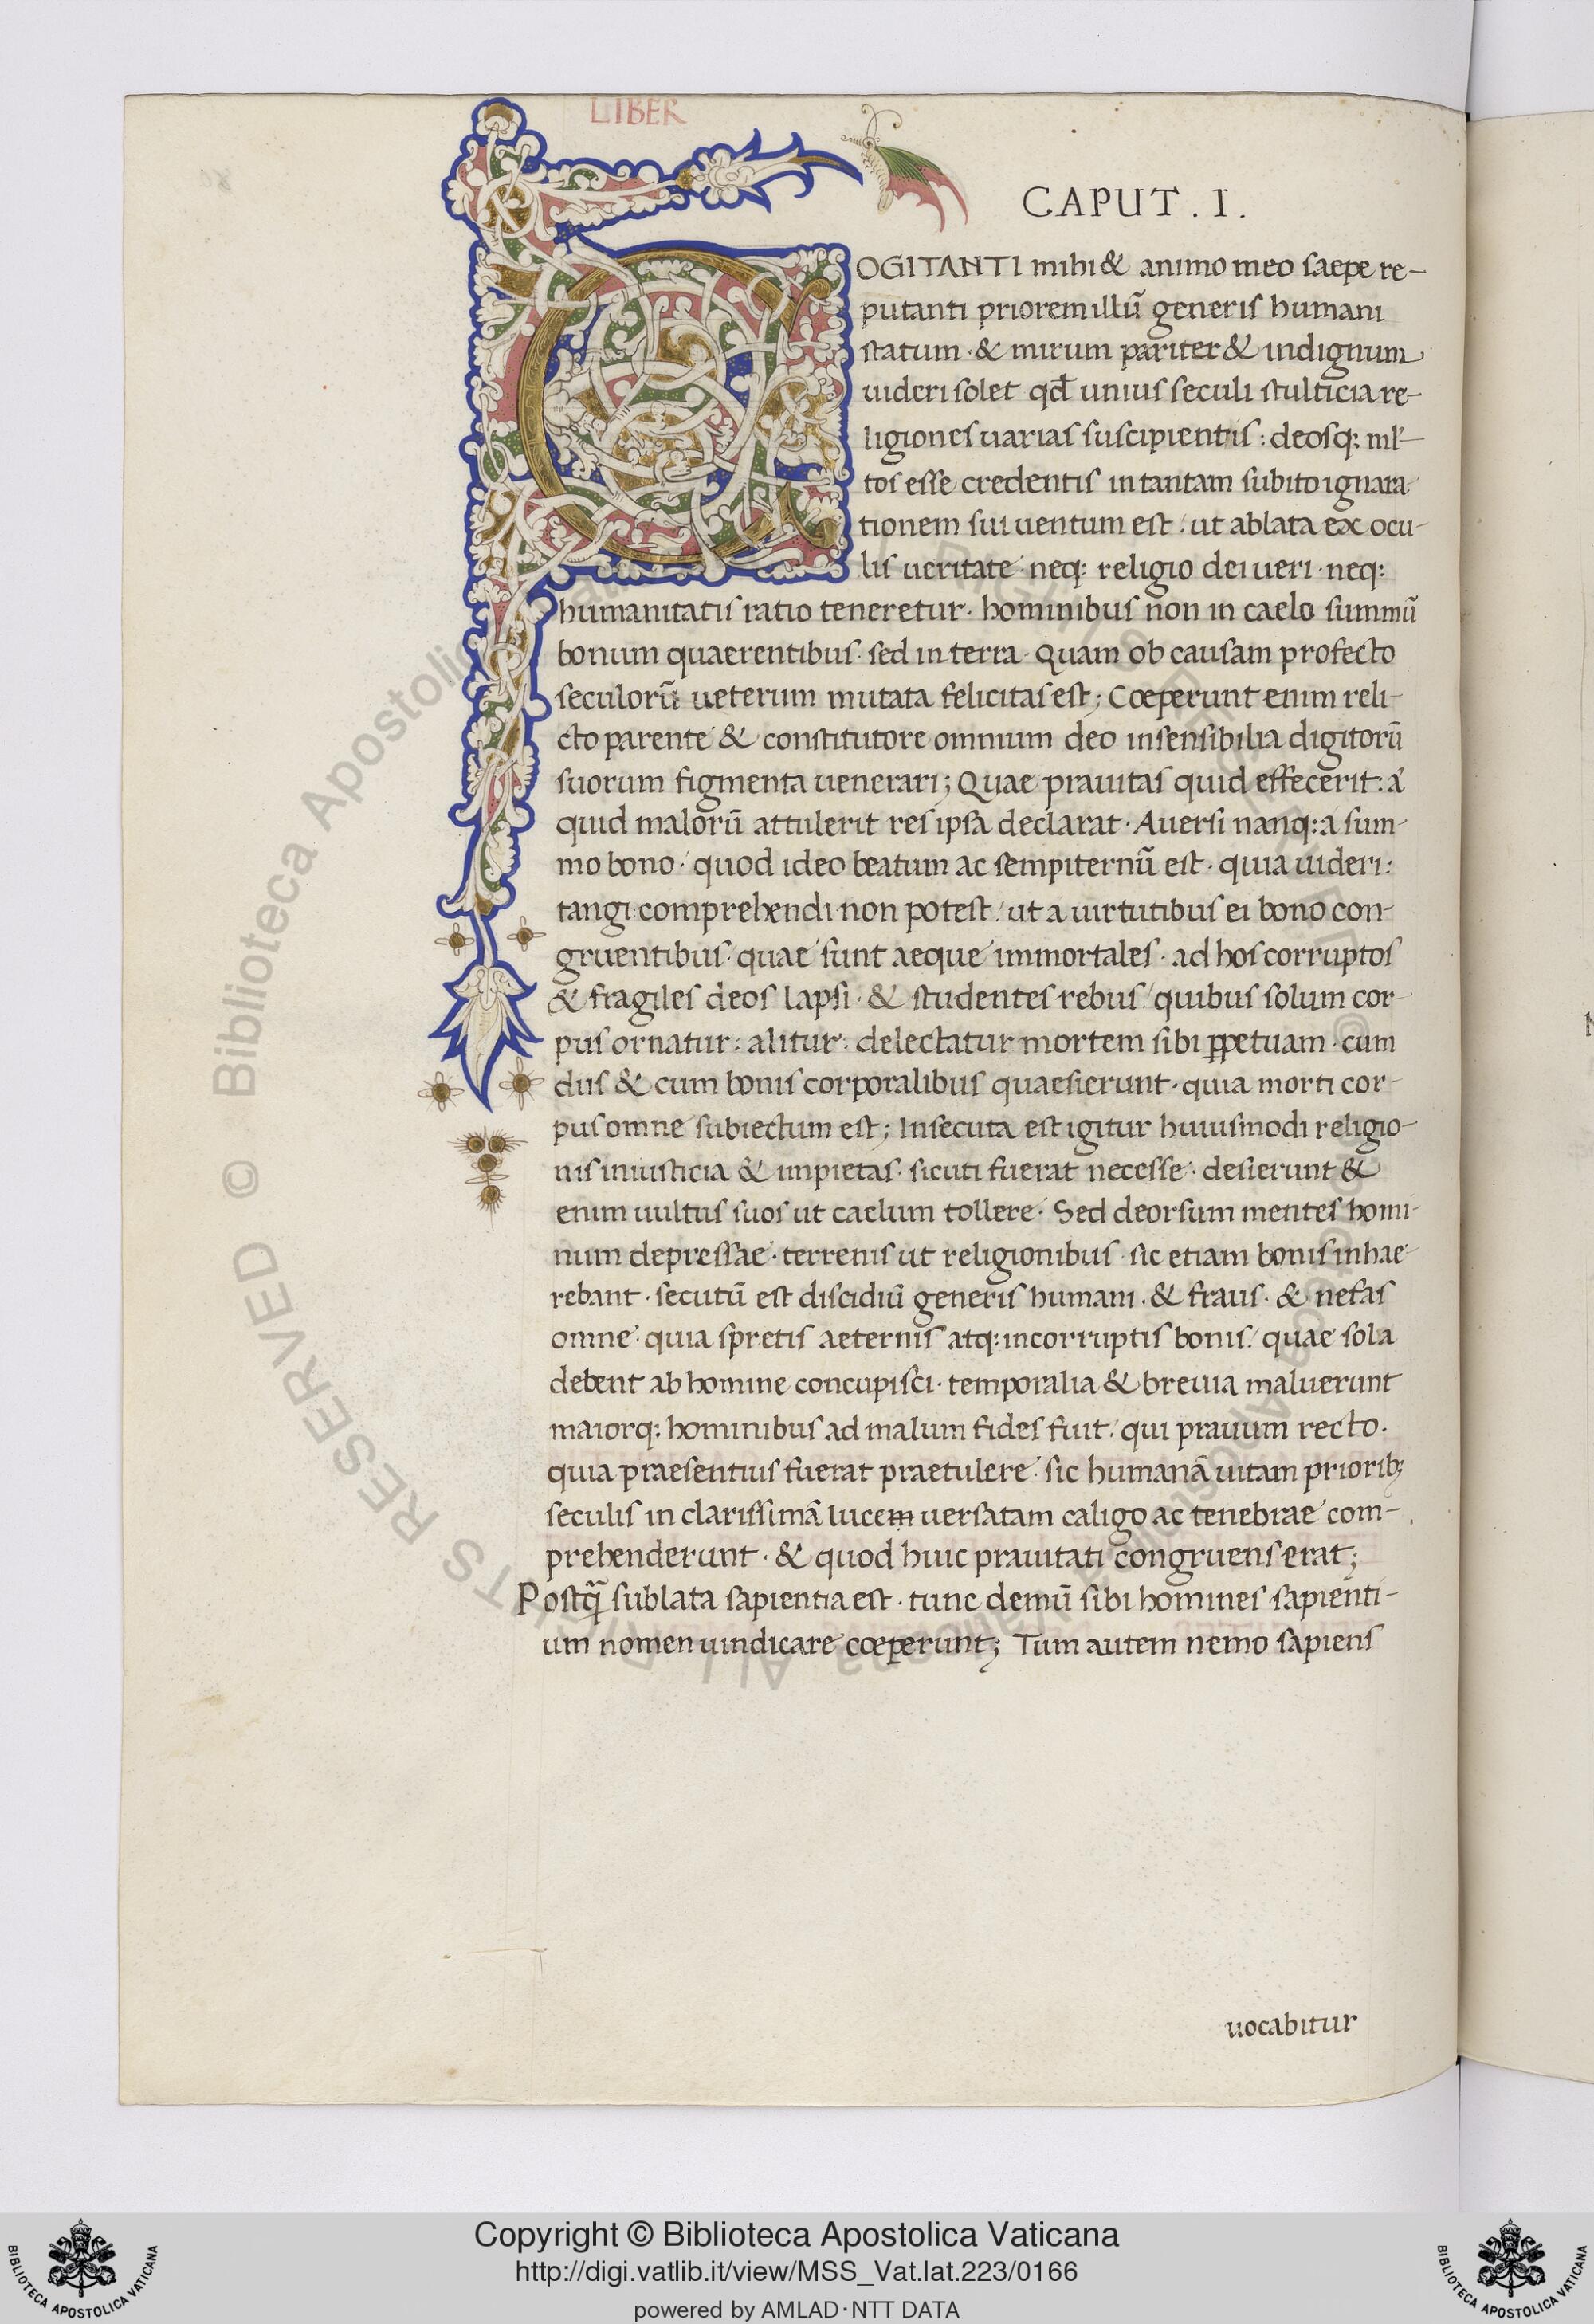 LIBER
CAPUT . I .
COGITANTI mihi & animo meo saepe re-
putanti priorem illũ generis humani
statum · & mirum pariter & indignum
uideri solet qđ unius seculi stulticia re-
ligiones uarias suscipientis : deosq; ml'-
tos esse credentis in tantam subito ignara
tionem sui uentum est : ut ablata ex ocu-
lis ueritate · neq; religio dei ueri · neq;
humanitatis ratio teneretur · hominibus non in caelo summũ
bonum quaerentibus · sed in terra · Quam ob causam profecto
seculorũ ueterum mutata felicitas est ; Cœperunt enim reli-
cto parente & constitutore omnium deo insensibilia digitorũ
suorum figmenta uenerari ; Quae prauitas quid effecerit : a'
quid malorũ attulerit res ipsa declarat · Auersi nanq; a sum-
mo bono · quod ideo beatum ac sempiternũ est · quia uideri :
tangi · comprehendi non potest : ut a uirtutibus ei bono con-
gruentibus · quae sunt aeque immortales · ad hos corruptos
& fragiles deos lapsi · & studentes rebus · quibus solum cor-
pus ornatur : alitur : delectatur mortem sibi ꝑpetuam · cum
diis & cum bonis corporalibus quaesierunt · quia morti cor-
pus omne subiectum est ; Insecuta est igitur huiusmodi religio-
nis iniusticia & impietas · sicuti fuerat necesse · desierunt &
enim uultus suos ut caelum tollere · Sed deorsum mentes homi-
num depressae · terrenis ut religionibus · sic etiam bonis inhae-
rebant · secutũ est discidiũ generis humani · & fraus · & nefas
omne · quia spretis aeternis atq; incorruptis bonis : quae sola
debent ab homine concupisci · temporalia & breuia maluerunt
maiorq; hominibus ad malum fides fuit : qui prauum recto ·
quia praesentius fuerat praetulere · sic humanã uitam priorib;
seculis in clarissimã lucem uersatam caligo ac tenebrae com-
prehenderunt · & quod huic prauitati congruens erat ;
Postq̃ sublata sapientia est · tunc demũ sibi homines sapienti-
um nomen uindicare cœperunt ; Tum autem nemo sapiens
uocabitur
© Biblioteca Apostolica Vaticana
Copyright © Biblioteca Apostolica Vaticana
http://digi.vatlib.it/view/MSS_Vat.lat.223/0166
powered by AMLAD·NTT DATA
BIBLIOTECA APOSTOLICA VATICANA
BIBLIOTECA APOSTOLICA VATICANA